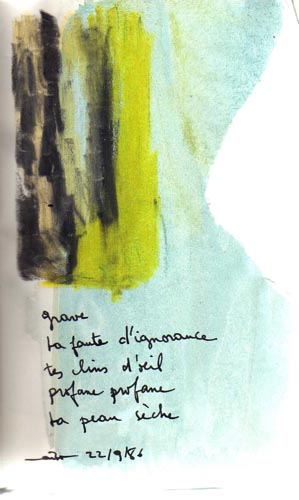 grave
ta faute d'ignorance
tes clins d'œil
profane profane
ta peau sèche
22/9/86